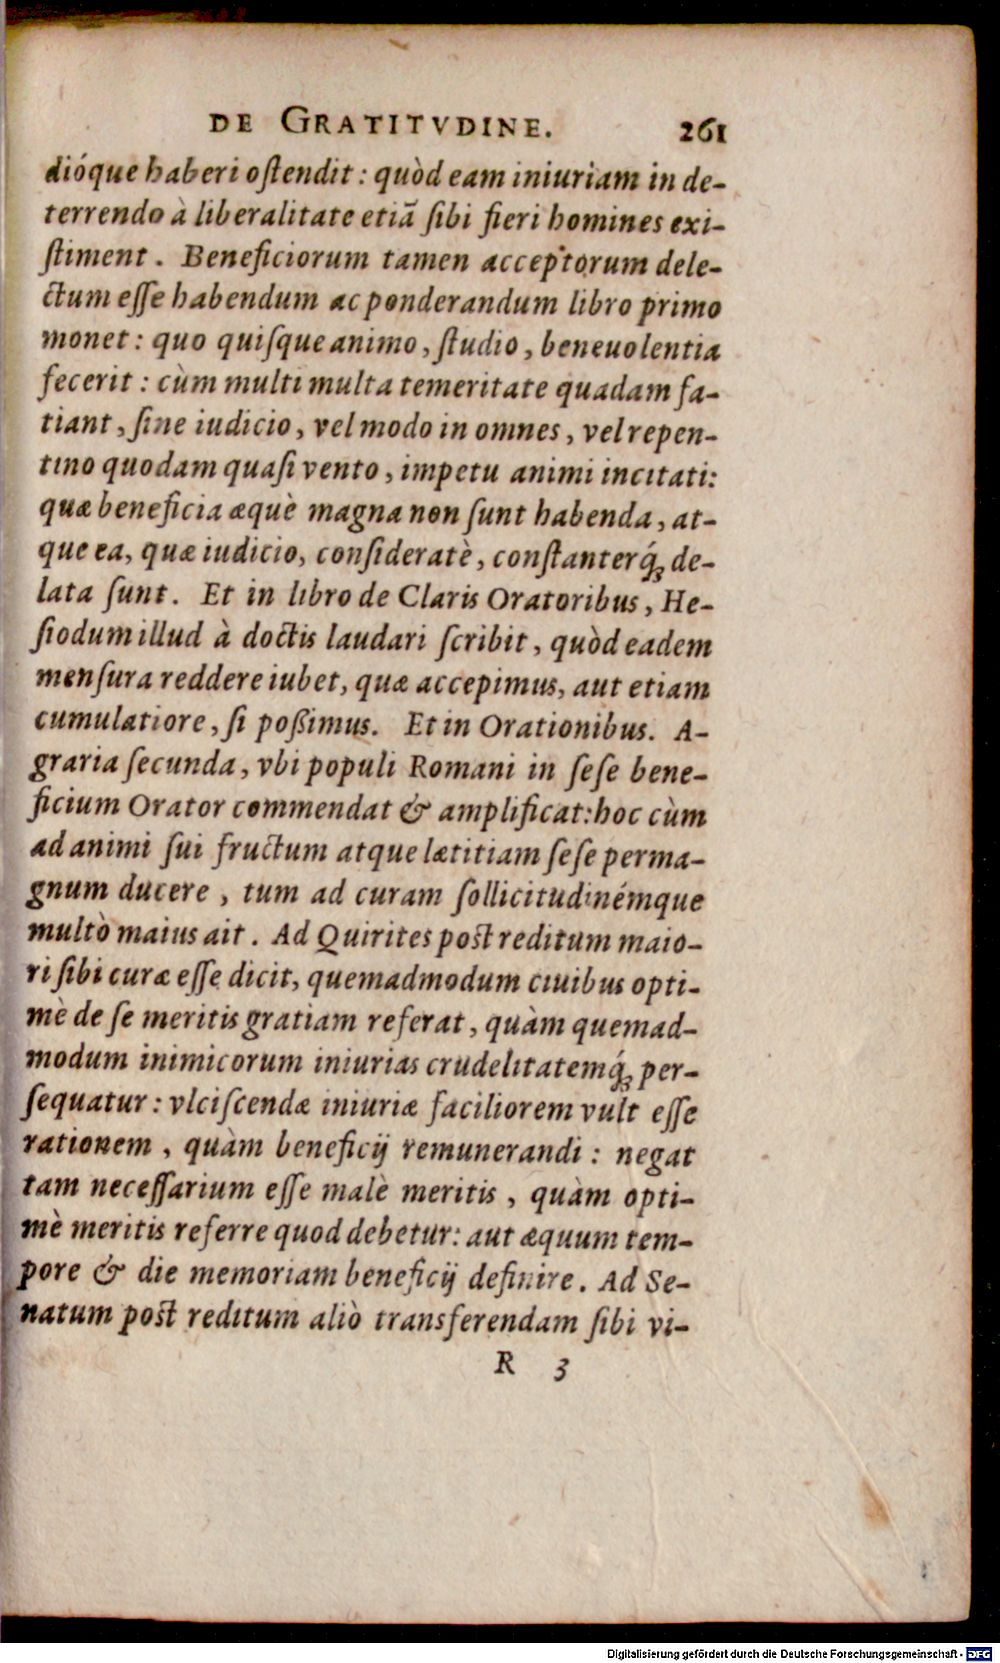 DE GRATITVDINE. 261
dióque haberi ostendit : quòd eam iniuriam in de-
terrendo à liberalitate etiã sibi fieri homines exi-
stiment . Beneficiorum tamen acceptorum dele-
ctum esse habendum ac ponderandum libro primo
monet : quo quisque animo , studio , beneuolentia
fecerit : cùm multi multa temeritate quadam fa-
tiant , sine iudicio , vel modo in omnes , vel repen-
tino quodam quasi vento , impetu animi incitati:
quæ beneficia æquè magna non sunt habenda , at-
que ea, quæ iudicio, consideratè , constanterq́ꝫ de-
lata sunt . Et in libro de Claris Oratoribus , He-
siodum illud à doctis laudari scribit , quòd eadem
mensura reddere iubet, quæ accepimus, aut etiam
cumulatiore , si poßimus. Et in Orationibus. A-
graria secunda , vbi populi Romani in sese bene-
ficium Orator commendat & amplificat: hoc cùm
ad animi sui fructum atque lætitiam sese perma-
gnum ducere , tum ad curam sollicitudinémque
multò maius ait . Ad Quirites post reditum maio-
ri sibi curæ esse dicit, quemadmodum ciuibus opti-
mè de se meritis gratiam referat , quàm quemad-
modum inimicorum iniurias crudelitatemq́ꝫ per-
sequatur : vlciscendæ iniuriæ faciliorem vult esse
rationem , quàm beneficij remunerandi : negat
tam necessarium esse malè meritis , quàm opti-
mè meritis referre quod debetur: aut æquum tem-
pore & die memoriam beneficij definire . Ad Se-
natum post reditum aliò transferendam sibi vi-
R 3
Digitalisierung gefördert durch die Deutsche Forschungsgemeinschaft - DFG